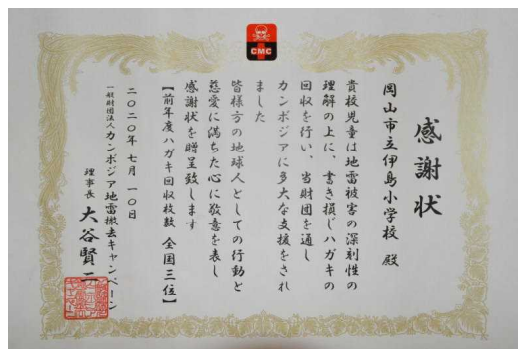 CMC
感謝状
岡山市立伊島小学校 殿
貴校児童は地雷被害の深刻性の
理解の上に、書き損じハガキの
回収を行い、当財団を通し
カンボジアに多大な支援をされ
ました
皆様方の地球人としての行動と
慈愛に満ちた心に敬意を表し
感謝状を贈呈致します
【前年度ハガキ回収枚数 全国三位】
二〇二〇年 七月 一〇日
一般財団法人カンボジア地雷撤去キャンペーン
理事長 大谷賢二